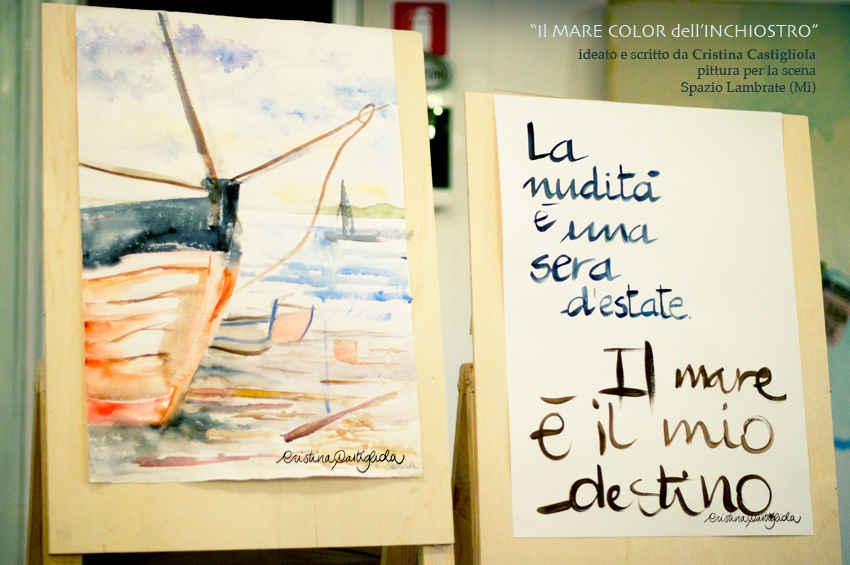 "Il MARE COLOR dell'INCHIOSTRO"
ideato e scritto da Cristina Castigliola
pittura per la scena
Spazio Lambrate (Mi)
La
nudità
è una
sera
d'estate.
Il mare
è il mio
destino
Cristina Castigliola
Cristina Castigliola